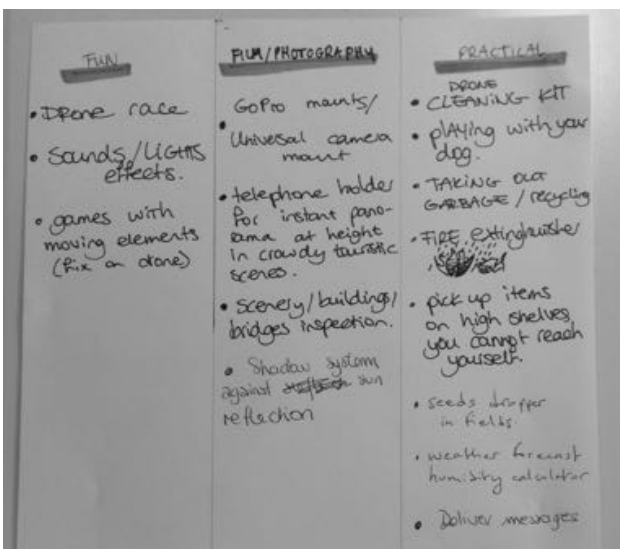 FUN
• Drone race
• Sounds/LIGHTS
effects.
• games with
moving elements
(fix on drone)
FILM/PHOTOGRAPHY
• GoPro mounts/
Universal camera
mount
• telephone holder
for instant pano-
rama at height
in crowdy touristic
scenes.
• scenery/buildings/
bridges inspection.
• Shadow system
against sun
reflection
PRACTICAL
DRONE
• CLEANING KIT
• plAYing with your
dog.
• TAKING OUT
GARBAGE/recycling
• FIRE extinghuisher
• pick up items
on high shelves
you cannot reach
yourself.
• seeds dropper
in fields.
• weather forecast
humidity calculator
• Deliver messages